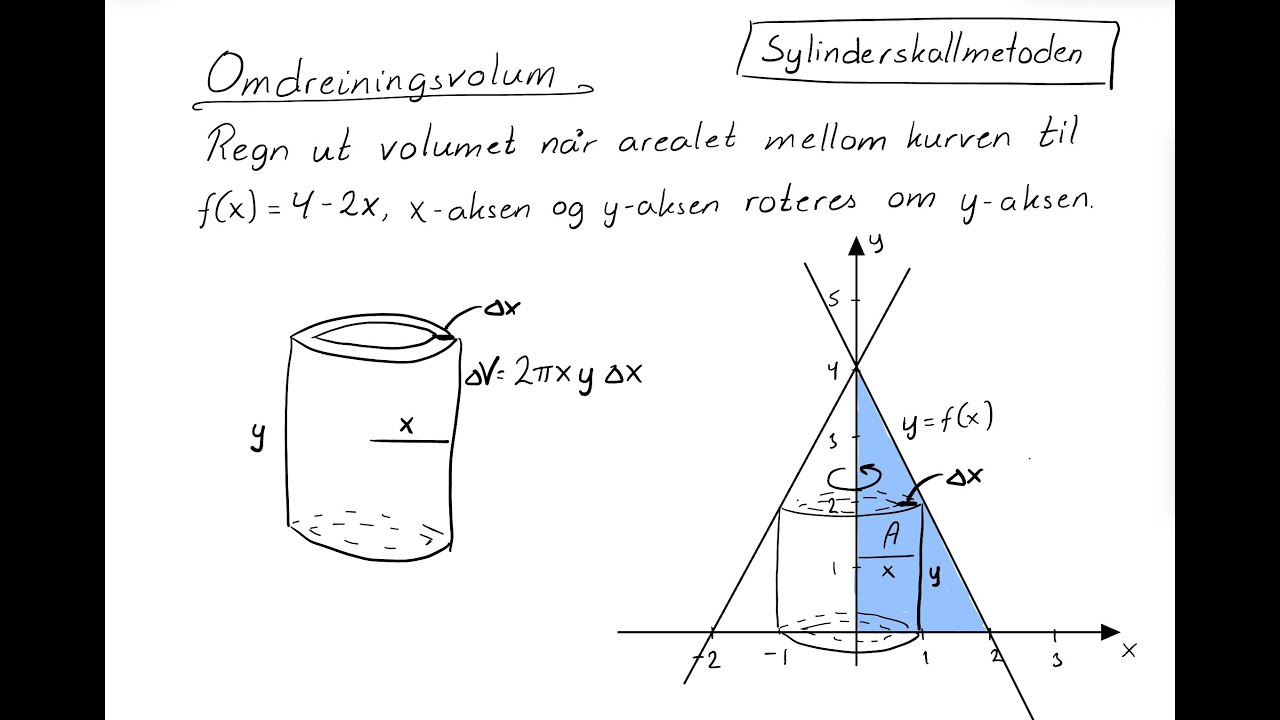 Omdreiningsvolum
Sylinderskallmetoden
Regn ut volumet når arealet mellom kurven til
f(x) = 4 - 2x, x-aksen og y-aksen roteres om y-aksen.
Δx
ΔV = 2πx y Δx
x
y
y
5
4
3
2
1
y = f(x)
Δx
A
x
y
-2 -1 1 2 3
x